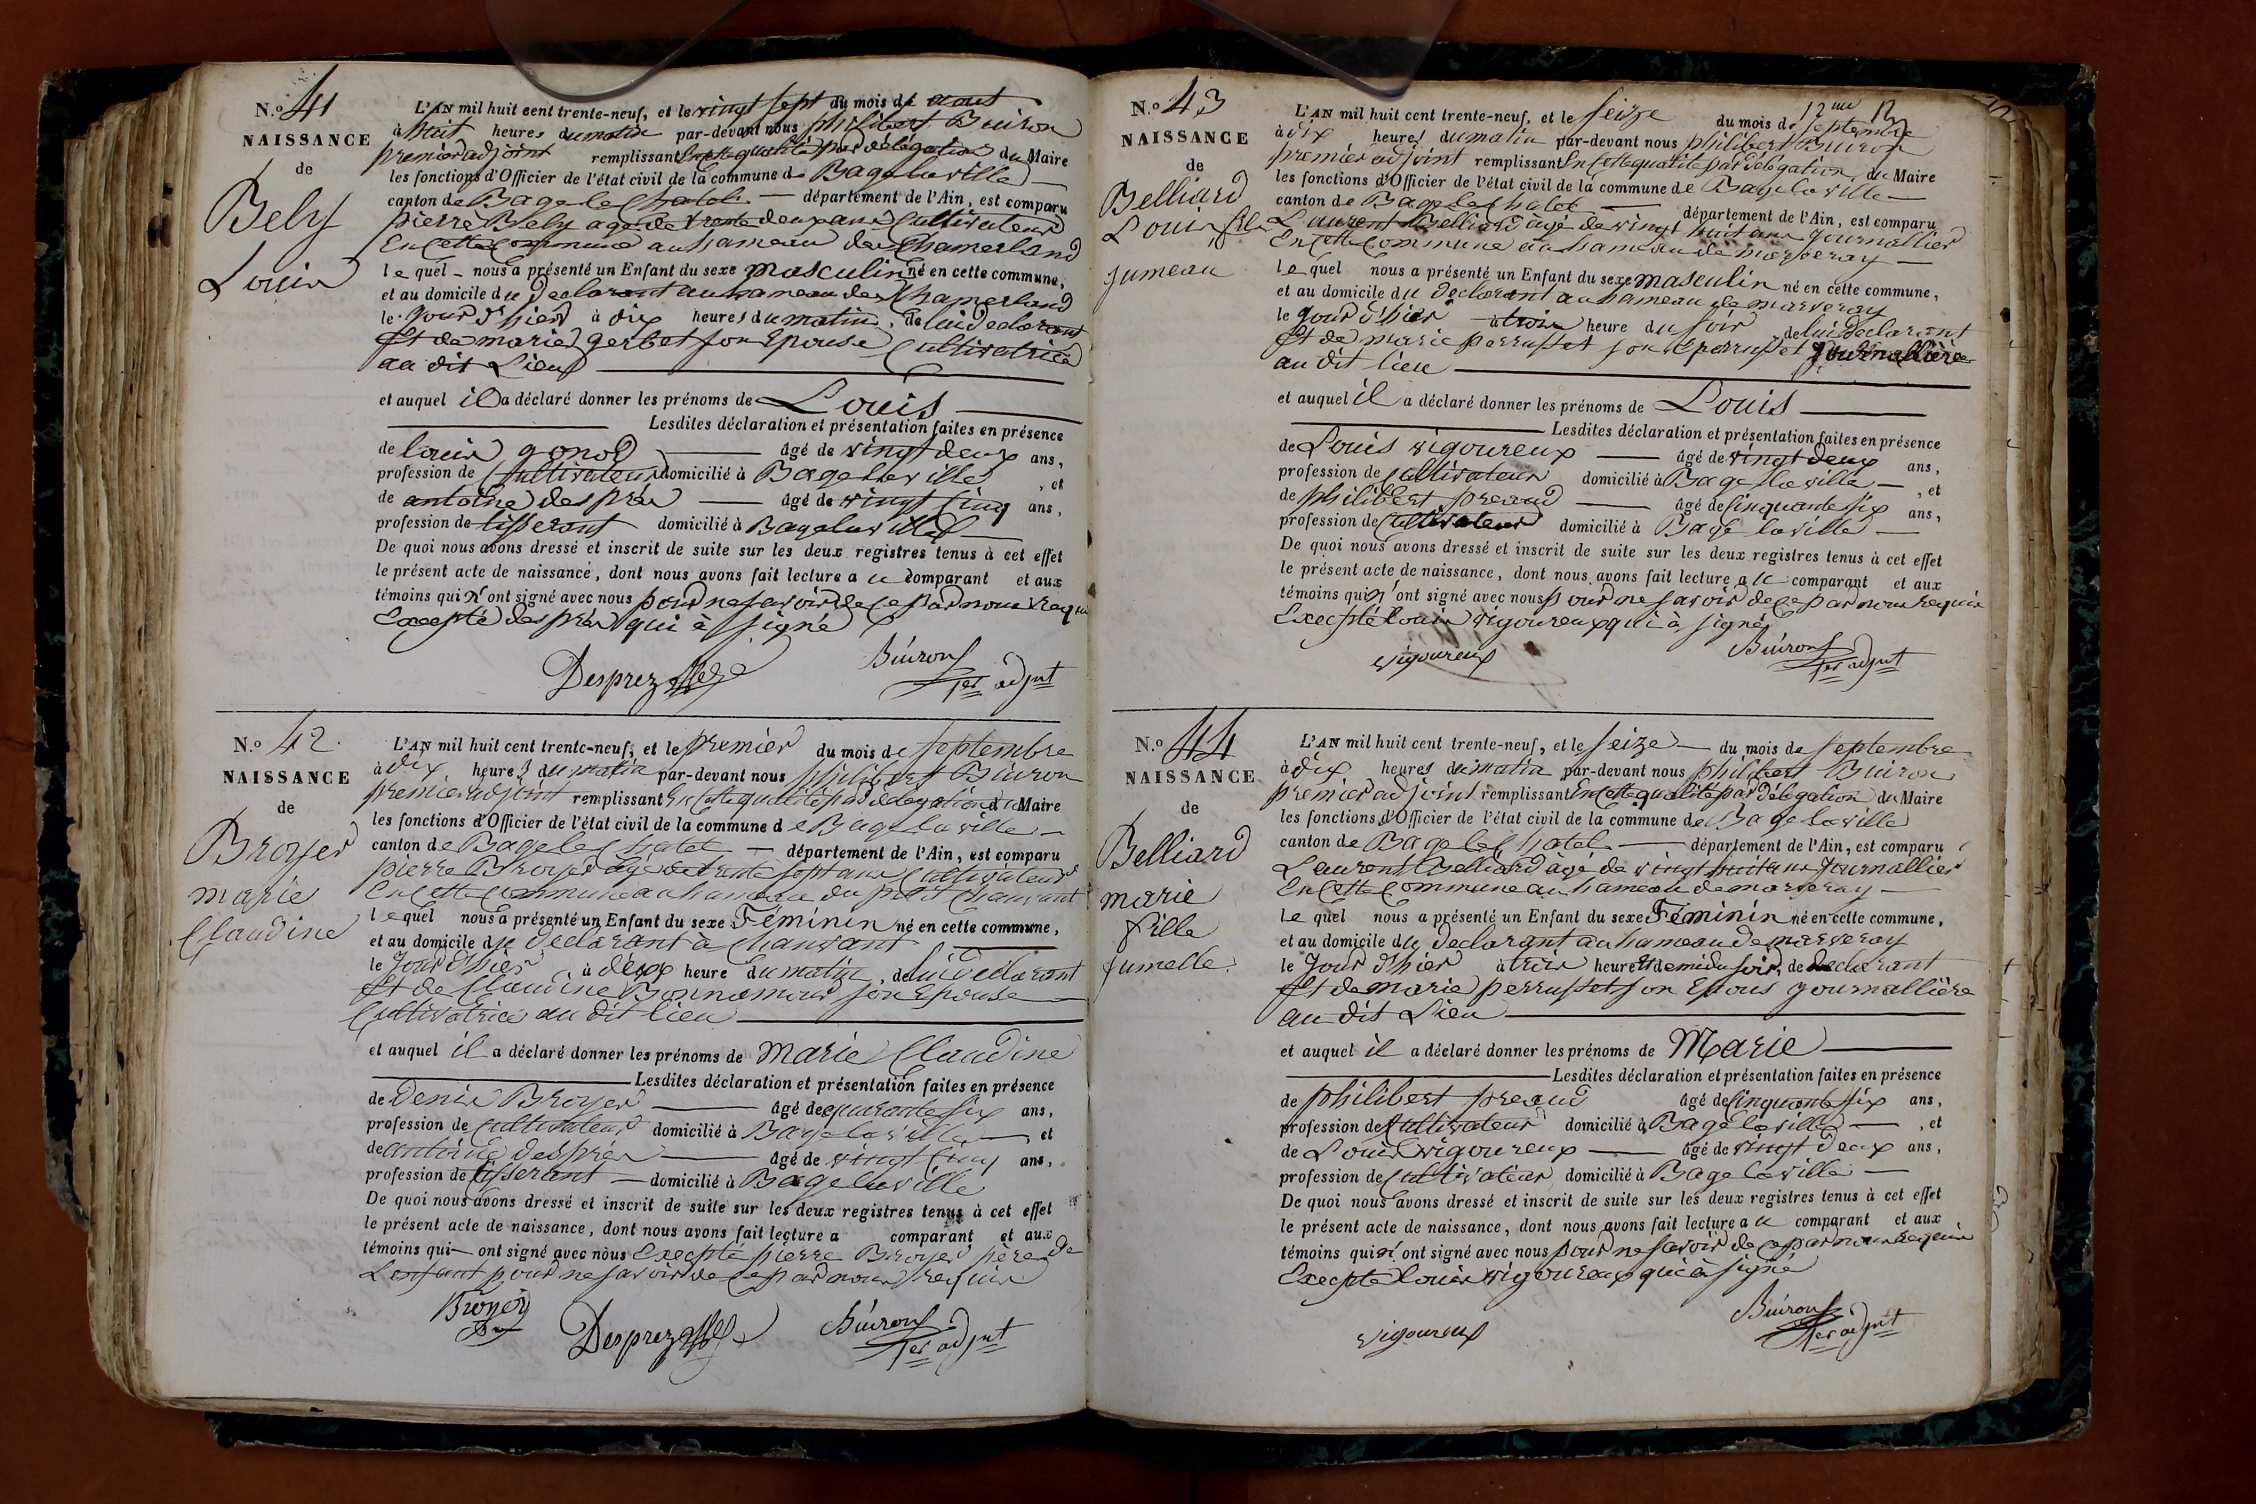 N.o 41
NAISSANCE
de
Bely
Louis
L'AN mil huit cent trente-neuf, et le vingt sept du mois de aout
à huit heures du matin par-devant nous philibert Buiron
premier adjoint remplissant en cette qualité par délégation du Maire
les fonctions d'Officier de l'état civil de la commune de Bage la ville
canton de Bage le Chatel département de l'Ain, est comparu
pierre Bely agé de trente deux ans Cultivateur
En Cette Commune au hameau des Chamerland
lequel nous a présenté un Enfant du sexe masculin né en cette commune,
et au domicile du declarant au hameau des Chamerland
le jour d'hier à dix heures du matin, de lui declarant
Et de marie gerbet son Epouse Cultivatrice
au dit Lieu
et auquel il a déclaré donner les prénoms de Louis
Lesdites déclaration et présentation faites en présence
de louis gonod âgé de vingt deux ans,
profession de Cultivateur domicilié à Bage la ville, et
de antoine desprès âgé de vingt Cinq ans,
profession de tisserant domicilié à Bage la ville
De quoi nous avons dressé et inscrit de suite sur les deux registres tenus à cet effet
le présent acte de naissance, dont nous avons fait lecture a u comparant et aux
témoins qui n'ont signé avec nous pour ne savoir de ce par nous requis
Excepté desprès qui à signé
Desprez Buiron
1er adjnt
N.o 42
NAISSANCE
de
Broyer
marie
Claudine
L'AN mil huit cent trente-neuf, et le premier du mois de septembre
à dix heures du matin par-devant nous philibert Buiron
premier adjoint remplissant En Cette qualité par délégation du Maire
les fonctions d'Officier de l'état civil de la commune de Bage la ville
canton de Bage le Chatel département de l'Ain, est comparu
pierre Broyer agé de trente sept ans Cultivateur
En Cette Commune au hameau du petit Chanvant
lequel nous a présenté un Enfant du sexe Féminin né en cette commune,
et au domicile du declarant à Chanvant
le Jour d'hier à deux heure du matin, de lui declarant
Et de Claudine Bonnamour son Epouse
Cultivatrice au dit lieu
et auquel il a déclaré donner les prénoms de Marie Claudine
Lesdites déclaration et présentation faites en présence
de Denis Broyer âgé de quarante six ans,
profession de Cultivateur domicilié à Bage la ville et
de antoine desprès âgé de vingt Cinq ans,
profession de tisserant domicilié à Bage la ville
De quoi nous avons dressé et inscrit de suite sur les deux registres tenus à cet effet
le présent acte de naissance, dont nous avons fait lecture a comparant et aux
témoins qui ont signé avec nous Excepté pierre Broyer père de
L'enfant pour ne savoir de ce par nous requis
Broyer Desprez Buiron
1er adjnt
12me
N.o 43
NAISSANCE
de
Belliard
Louis fils
jumeau
L'AN mil huit cent trente-neuf, et le seize du mois de septembre
à dix heures du matin par-devant nous philibert Buiron
premier adjoint remplissant En Cette qualité par délégation du Maire
les fonctions d'Officier de l'état civil de la commune de Bage la ville
canton de Bage le Chatel département de l'Ain, est comparu
Laurent Belliard âgé de vingt huit ans Journallier
En Cette Commune au hameau de marveray
lequel nous a présenté un Enfant du sexe masculin né en cette commune,
et au domicile du declarant au hameau de marveray
le jour d'hier à trois heure du soir, de lui declarant
Et de marie perrusset son perrusset Journallière
au dit lieu
et auquel il a déclaré donner les prénoms de Louis
Lesdites déclaration et présentation faites en présence
de Louis vigoureux âgé de vingt deux ans,
profession de Cultivateur domicilié à Bage la ville, et
de philibert preaud âgé de Cinquante six ans,
profession de Cultivateur domicilié à Bage la ville
De quoi nous avons dressé et inscrit de suite sur les deux registres tenus à cet effet
le présent acte de naissance, dont nous avons fait lecture a u comparant et aux
témoins qui n'ont signé avec nous pour ne savoir de ce par nous requis
Excepté Louis vigoureux qui à signé
vigoureux Buiron
1er adjnt
N.o 44
NAISSANCE
de
Belliard
marie
fille
jumelle
L'AN mil huit cent trente-neuf, et le seize du mois de septembre
à dix heures du matin par-devant nous philibert Buiron
premier adjoint remplissant En Cette qualité par délégation du Maire
les fonctions d'Officier de l'état civil de la commune de Bage la ville
canton de Bage le Chatel département de l'Ain, est comparu
Laurent Belliard âgé de vingt huit ans Journallier
En Cette Commune au hameau de marveray
lequel nous a présenté un Enfant du sexe Féminin né en cette commune,
et au domicile du declarant au hameau de marveray
le Jour d'hier à trois heure et demi du soir, de declarant
Et de marie perrusset son Epous journallière
au dit Lieu
et auquel il a déclaré donner les prénoms de Marie
Lesdites déclaration et présentation faites en présence
de philibert preaud âgé de Cinquante six ans,
profession de Cultivateur domicilié à Bage la ville, et
de Louis vigoureux âgé de vingt deux ans,
profession de Cultivateur domicilié à Bage la ville
De quoi nous avons dressé et inscrit de suite sur les deux registres tenus à cet effet
le présent acte de naissance, dont nous avons fait lecture a u comparant et aux
témoins qui n'ont signé avec nous pour ne savoir de ce par nous requis
Excepté louis vigoureux qui à signé
vigoureux Buiron
1er adjnt